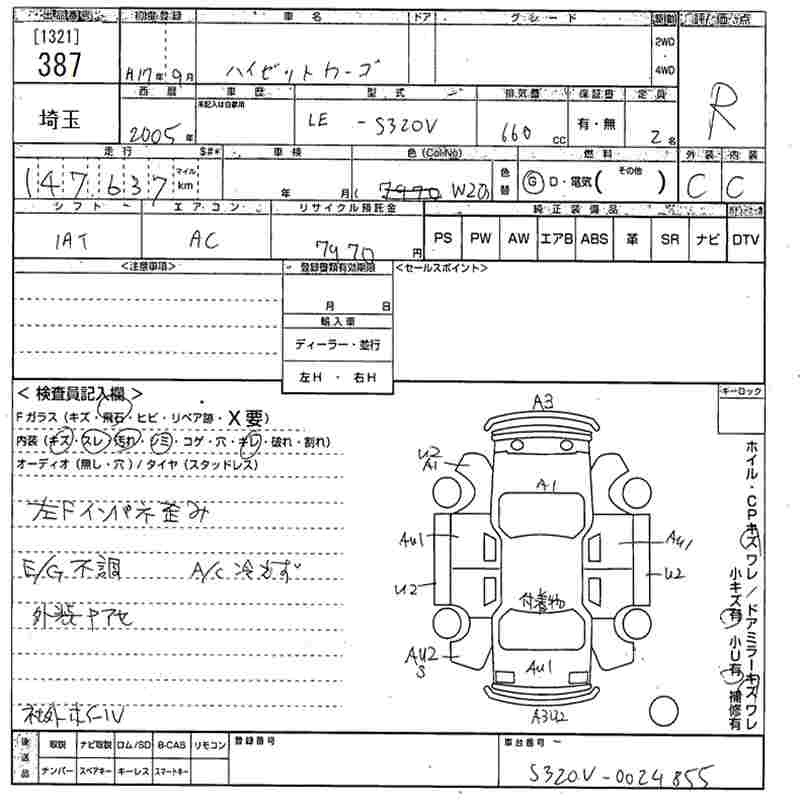 出品番号 初度登録 車名 ドア グレード 駆動 評価点
[1321]
387
H17年9月 ハイゼットカーゴ 2WD・4WD R
西暦 車歴 型式 排気量 保証書 定員
未記入は自家用
埼玉 2005年 LE-S320V 660cc 有・無 2名
走行 $#* 車検 色(Colno) 燃料 外装 内装
147637 マイル km 年 月 (7970 W20) 色替 G D・電気( その他 ) C C
シフト エアコン リサイクル預託金 純正装備品
IAT AC 7970円 PS PW AW エアB ABS 革 SR ナビ DTV
<注意事項> 登録書類有効期限 <セールスポイント>
月 日
輸入車
ディーラー・並行
左H・右H
<検査員記入欄> キーロック
Fガラス(キズ・飛石・ヒビ・リペア跡・X要)
内装(キズ・スレ・汚れ・シミ・コゲ・穴・キレ・破れ・割れ)
オーディオ(無し・穴)/タイヤ(スタッドレス)
左Fインパネ歪み
E/G不調 A/C冷えず
外装ヤケ
社外ホイール
A3
U2
A1
A1
AU1 AU1
U2 U2
付着物
AU2
S
AU1
A3U2
ホイル・CPキズワレ/ドアミラーキズワレ
小キズ有 小U有 補修有
後送品 取説 ナビ取説 ロム/SD B-CAS リモコン 登録番号 車台番号
ナンバー スペアキー キーレス スマートキー S320V-0024855